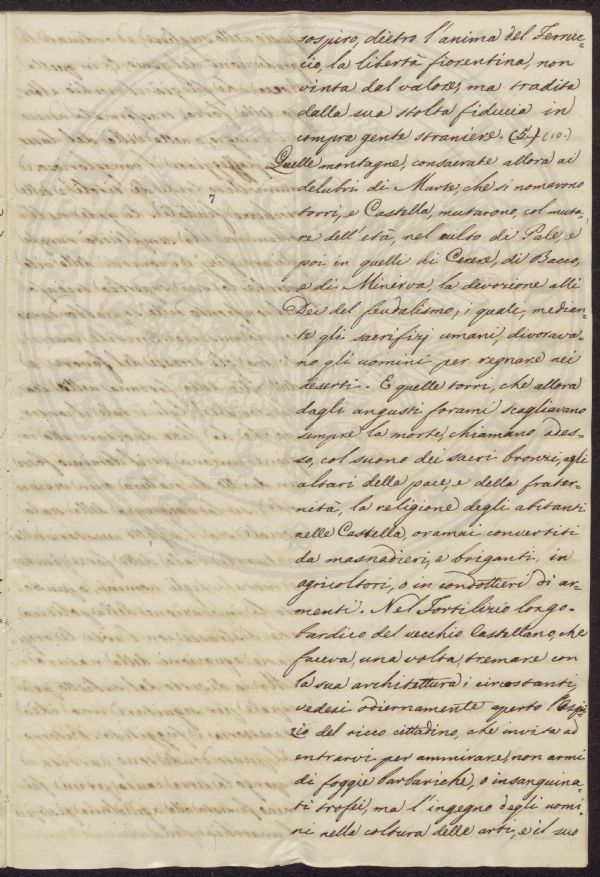 sospiro, dietro l'anima del Ferruc=
cio, la libertà fiorentina, non
vinta dal valore, ma tradita
dalla sua stolta fiducia in
compra gente straniera. (5.) (10.)
Quelle montagne, consacrate allora ai
delubri di Marte, che si nomarono
torri, e Castella, mutarono, col muta=
re dell'età, nel culto di Pale, e
poi in quelli di Cerere, di Bacco,
e di Minerva, la devozione alli
Dei del feudalismo, i quali, median=
te gli sacrifizj umani, divorava=
no gli uomini per regnare nei
deserti. E quelle torri, che allora
dagli angusti forami scagliavano
sempre la morte, chiamano, ades=
so, col suono dei sacri bronzi, agli
altari della pace, e della frater=
nità, la religione degli abitanti
nelle Castella, oramai convertiti
da masnadieri, e briganti, in
agricoltori, o in condottieri di ar=
menti. Nel Fortilizio longo=
bardico del vecchio Castellano, che
faceva, una volta, tremare con
la sua architettura i circostanti,
vedesi odiernamente aperto l'ospi=
zio del ricco cittadino, che invita ad
entrarvi per ammirare, non armi
di foggie barbariche, o insanguina=
ti trofei, ma l'ingegno degli uomi=
ni nella coltura delle arti, e il suo
7